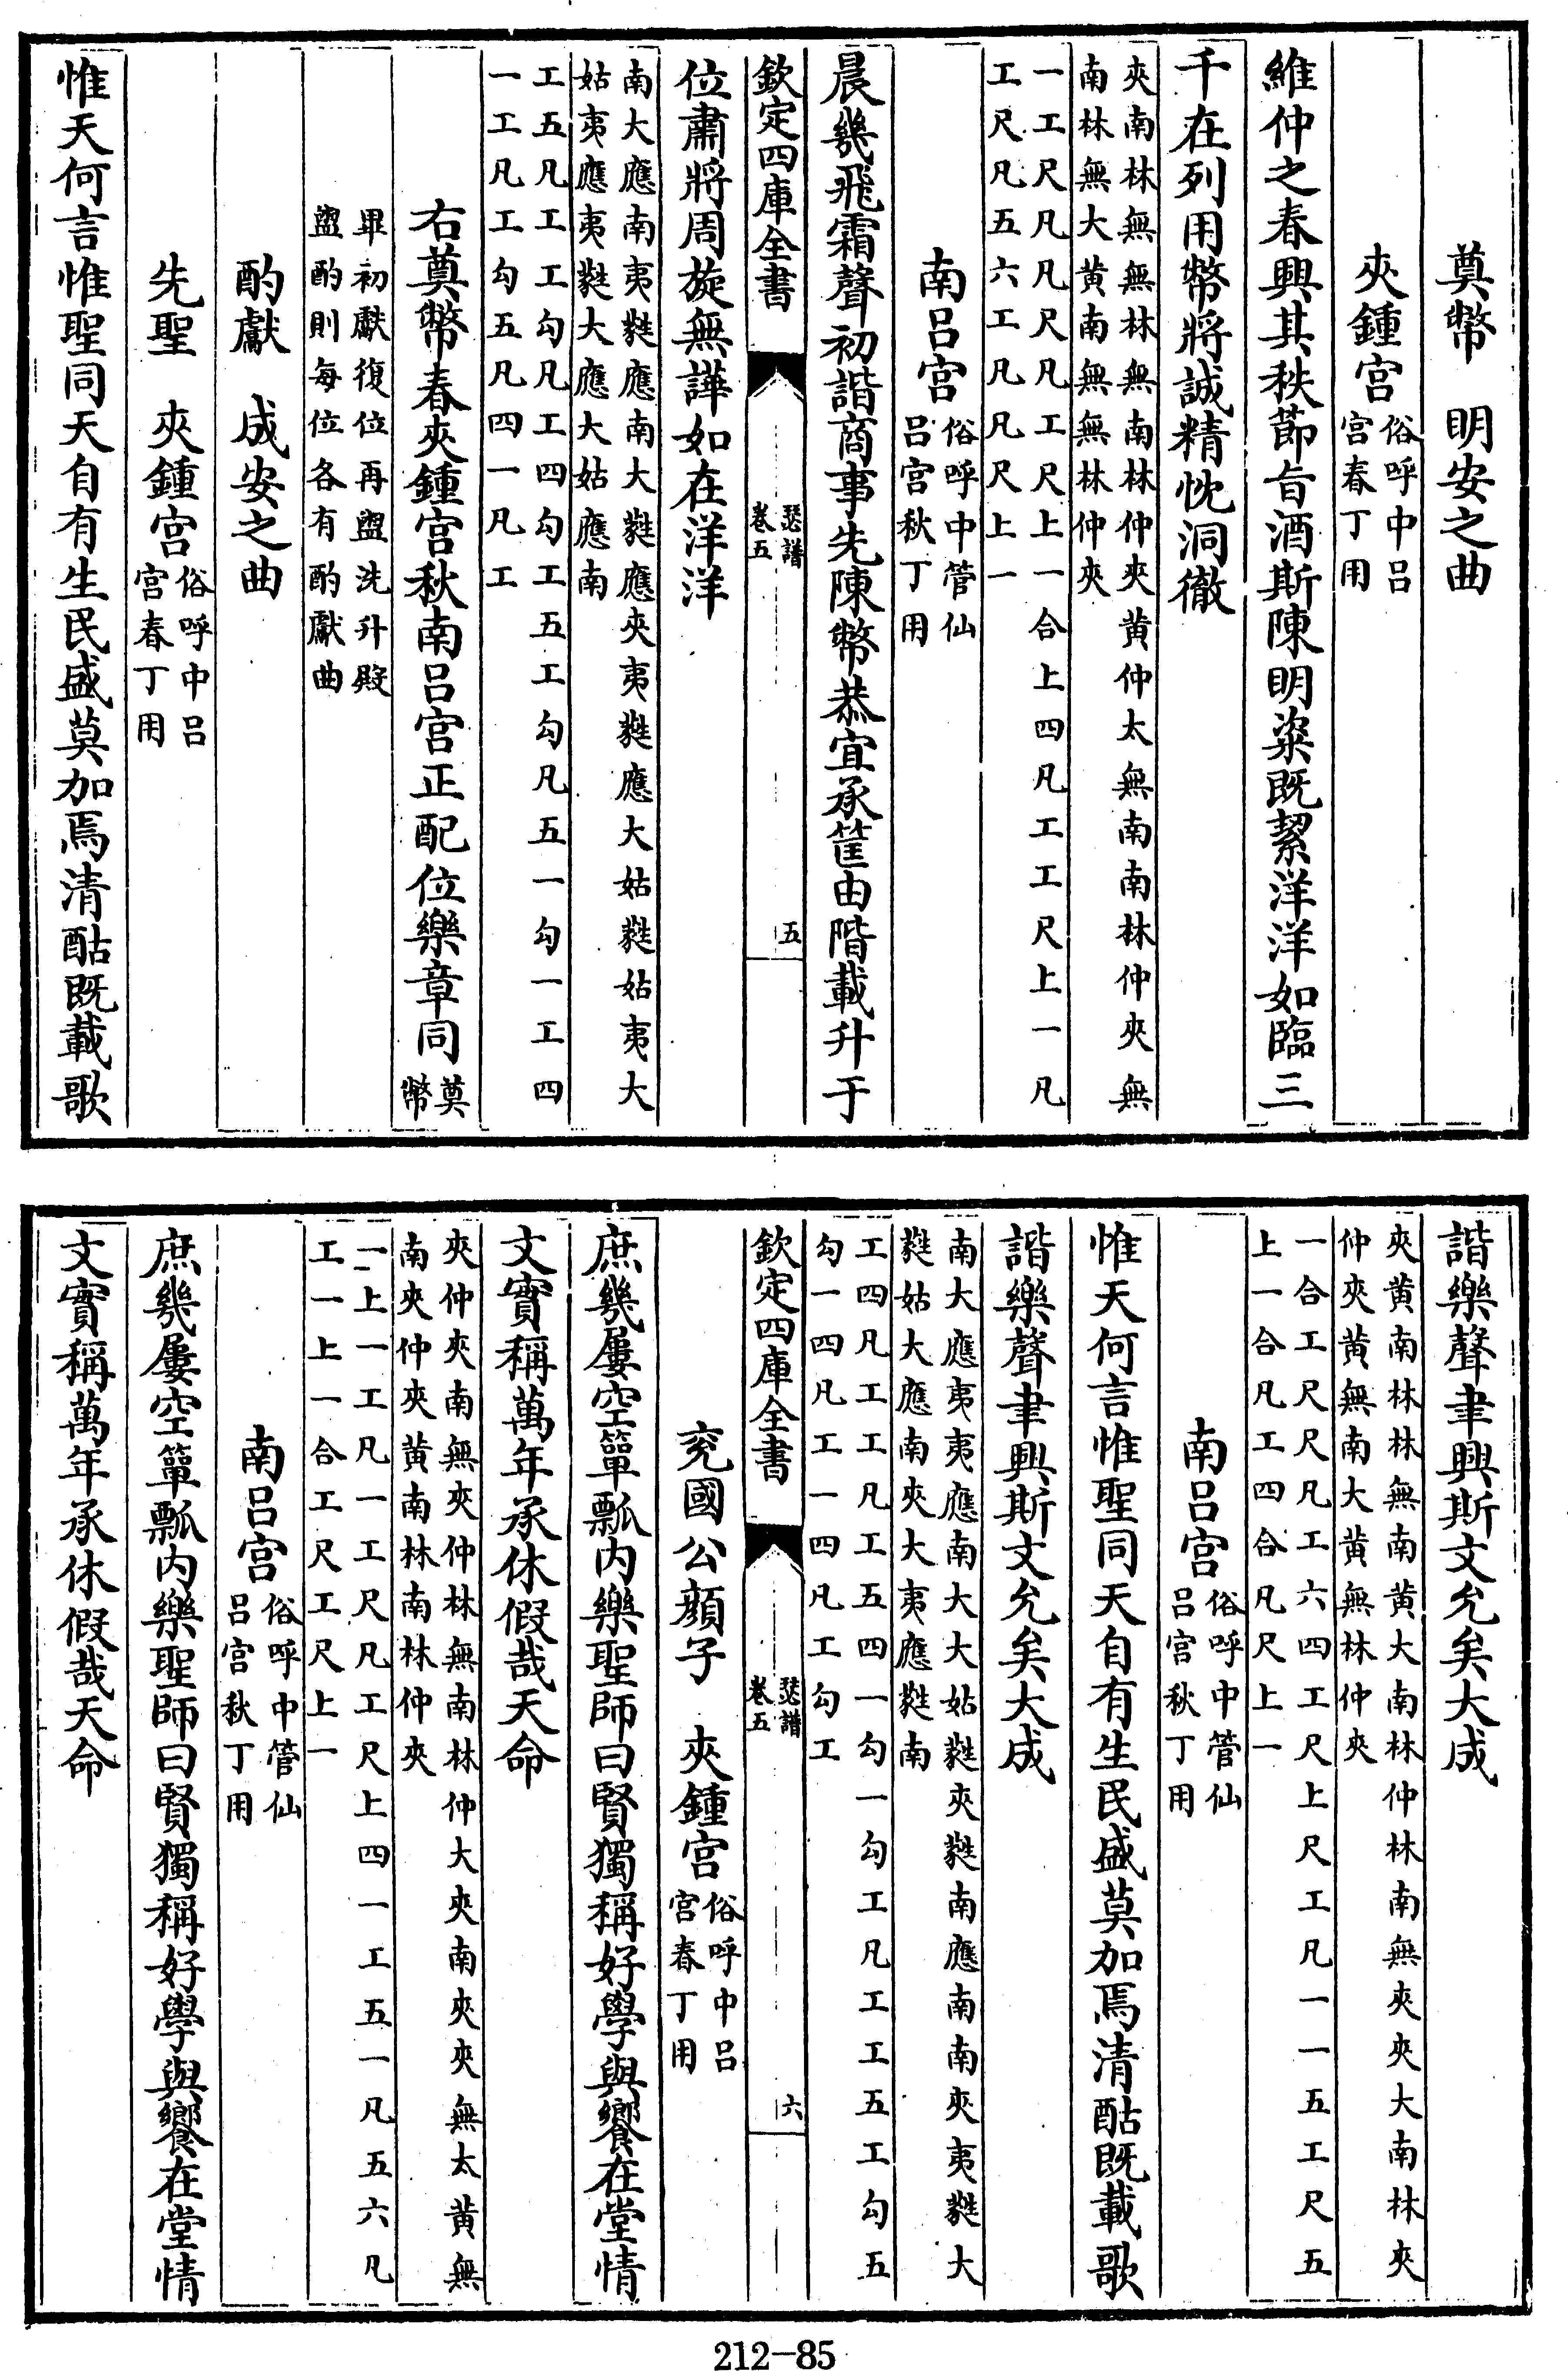 奠幣　明安之曲
夾鍾宫俗呼中吕宫春丁用
維仲之春興其秩節旨酒斯陳明粢既絜洋洋如臨三
千在列用幣將誠精忱洞徹
夾南林無無林無南林仲夾黄仲太無南南林仲夾無
南林無大黄南無無林仲夾
一工尺凡凡尺凡工尺上一合上四凡工工尺上一凡
工尺凡五六工凡凡尺上一
南吕宫俗呼中管仙吕宫秋丁用
晨幾飛霜聲初諧商事先陳幣恭宜承筐由階載升于
欽定四庫全書
瑟譜
卷五
五
位肅將周旋無譁如在洋洋
南大應南夷㽔應南大㽔應夾夷㽔應大姑㽔姑夷大
姑夷應夷㽔大應大姑應南
工五凡工工勾凡工四勾工五工勾凡五一勾一工四
一工凡工勾五凡四一凡工
右奠幣春夾鍾宫秋南吕宫正配位樂章同奠幣
畢初獻復位再盥洗升殿
盥酌則每位各有酌獻曲
酌獻　成安之曲
先聖　夾鍾宫俗呼中吕宫春丁用
惟天何言惟聖同天自有生民盛莫加焉清酤既載歌
諧樂聲聿興斯文允矣大成
夾黄南林林無南黄大南林仲林南無夾夾大南林夾
仲夾黄無南大黄無林仲夾
一合工尺尺凡工六四工尺上尺工凡一一五工尺五
上一合凡工四合凡尺上一
南吕宫俗呼中管仙吕宫秋丁用
惟天何言惟聖同天自有生民盛莫加焉清酤既載歌
諧樂聲聿興斯文允矣大成
南大應夷夷應南大大姑㽔夾㽔南應南南夾夷㽔大
㽔姑大應南夾大夷應㽔南
工四凡工工凡工五四一勾一勾工凡工工五工勾五
勾一四凡工一四凡工勾工
欽定四庫全書
瑟譜
卷五
六
兖國公顔子　夾鍾宫俗呼中吕宫春丁用
庶幾屢空簞瓢内樂聖師曰賢獨稱好學與饗在堂情
文實稱萬年承休假哉天命
夾仲夾南無夾仲林無南林仲大夾南夾夾無太黄無
南夾仲夾黄南林南林仲夾
一上一工凡一工尺凡工尺上四一工五一凡五六凡
工一上一合工尺工尺上一
南吕宫俗呼中管仙吕宫秋丁用
庶幾屢空簞瓢内樂聖師曰賢獨稱好學與饗在堂情
文實稱萬年承休假哉天命
212-85